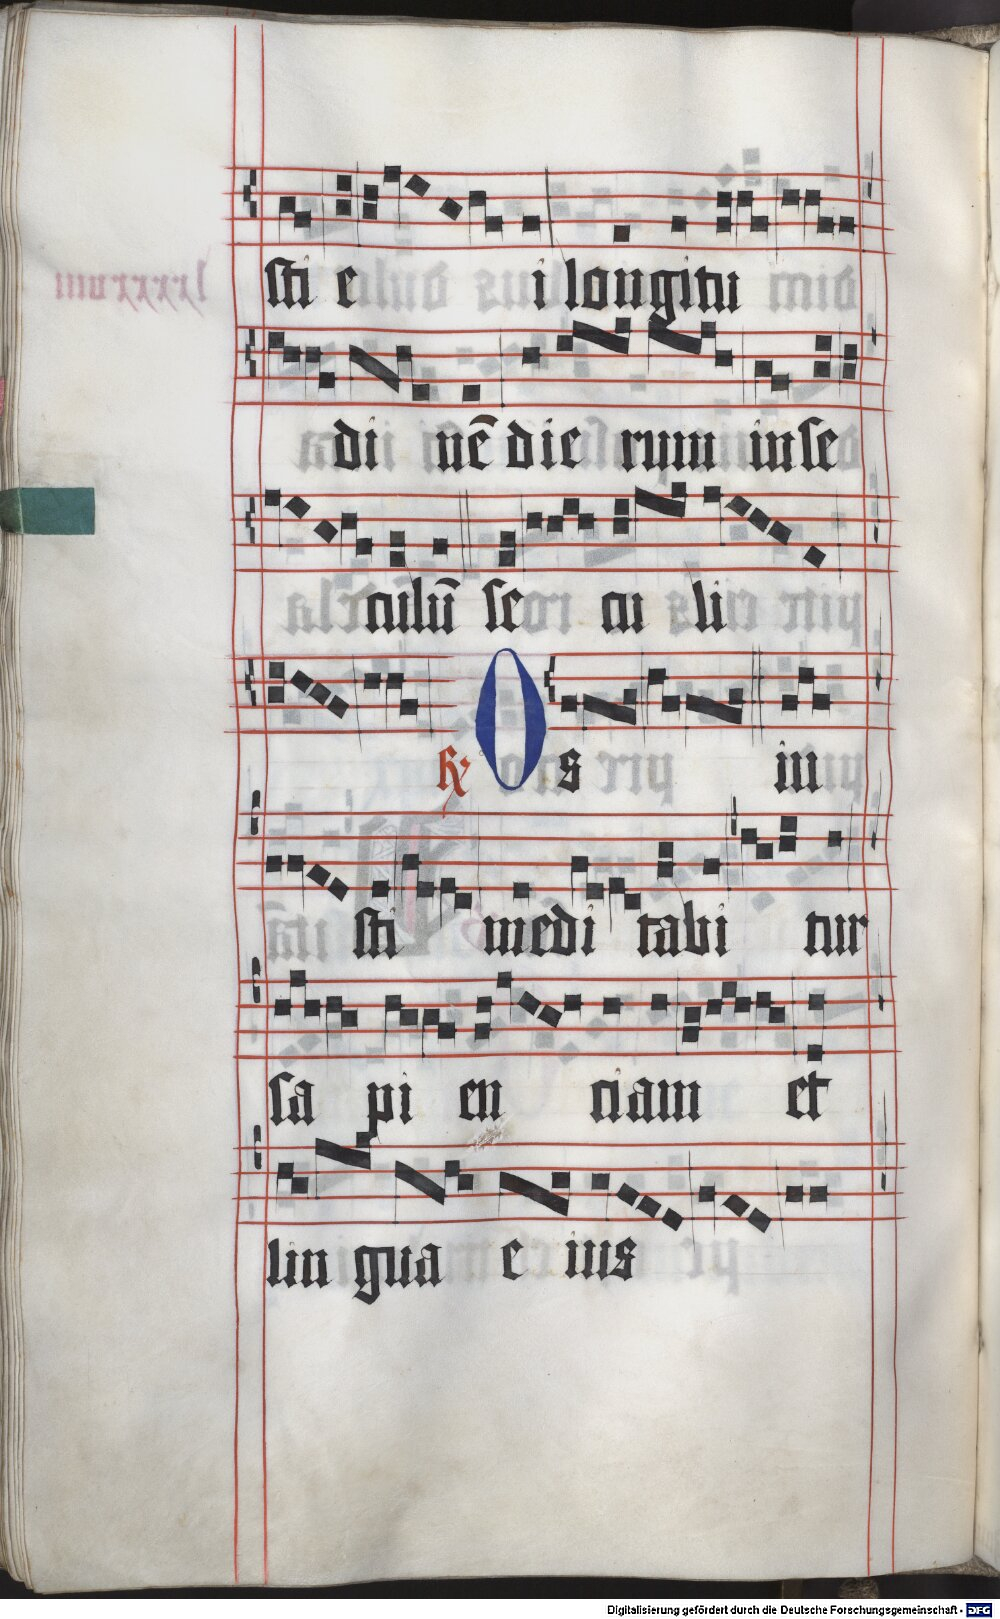 sti e i longitu
di nē die rum in se
culū se cu li
R Os iu
sti medi tabi tur
sa pi en ciam et
lin gua e ius
Digitalisierung gefördert durch die Deutsche Forschungsgemeinschaft - DFG